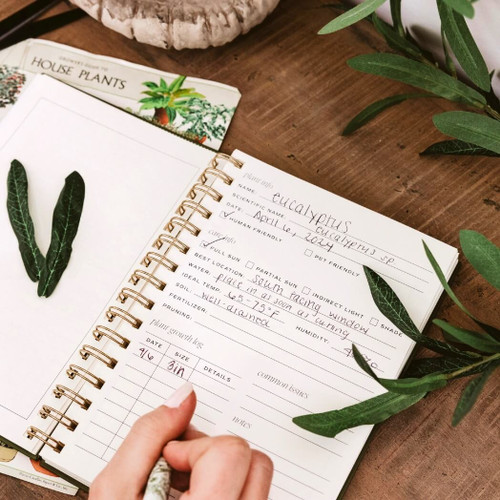 HOUSE PLANTS
plant info
NAME: eucalyptus
SCIENTIFIC NAME: eucalyptus sp
DATE: April 6, 2024
HUMAN FRIENDLY PET FRIENDLY
care info
FULL SUN PARTIAL SUN INDIRECT LIGHT SHADE
BEST LOCATION: south facing window
WATER: place in as soon as curning
IDEAL TEMP: 65-75°F HUMIDITY:
SOIL: well-drained
FERTILIZER:
PRUNING:
plant growth log
DATE SIZE DETAILS
4/6 3in
common issues
notes